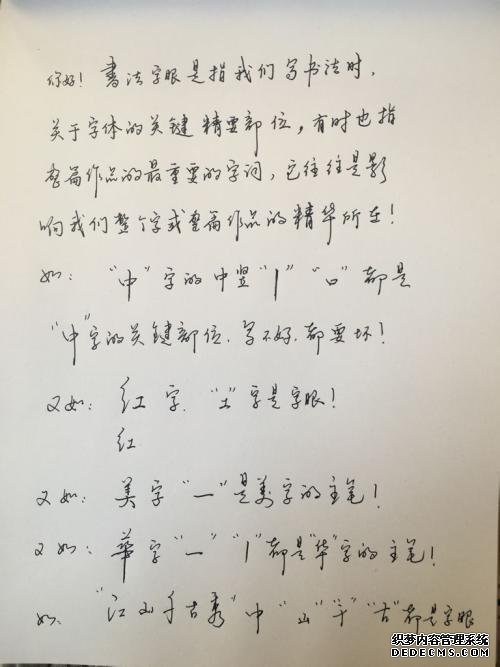 你好！書法字眼是指我们写书法时，
关于字体的关键精要部位，有时也指
整篇作品的最重要的字词，它往往是影
响我们整个字或整篇作品的精华所在！
如："中"字的中竖"丨""口"都是
"中"字的关键部位.写不好.都要坏！
又如：红字."土"字是字眼！
红
又如：美字"一"是美字的主笔！
又如：華字"一""丨"都是"华"字的主笔！
如："江山千古秀"中"山""千""古"都是字眼
织梦内容管理系统
DEDECMS.COM